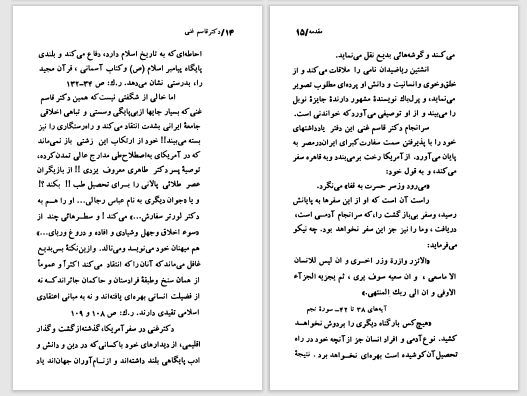 ۱۴/دکتر قاسم غنی
احاطه‌ای که به تاریخ اسلام دارد، دفاع می‌کند و بلندی
پایگاه پیامبر اسلام (ص) و کتاب آسمانی ، قرآن مجید
را، بدرستی نشان می‌دهد. ر.ك: ص ۳۴-۱۳۲
اما خالی از شگفتی نیست که همین دکتر قاسم
غنی که بسیار جایها از بی‌پایگی و سستی و تباهی اخلاقی
جامعهٔ ایرانی بشدت انتقاد می‌کند و راه رستگاری را نیز
بسته می‌بیند!! خود از ارتکاب این زشتی باز نمی‌ماند
که در آمریکای به‌اصطلاح طی مدارج عالی تمدن کرده،
توصیهٔ پسر دکتر طاهری معروف یزدی !! از بازیگران
عصر طلائی پالانی را برای تحصیل طب !! بکند ؟!
و یا جوان دیگری به نام عباس رجالی... او را هم به
دکتر لورتر سفارش...» می‌کند ! و سطرهائی چند از
«سوء اخلاق وجهل وشیادی و افاده و دروغ و ریای...»
هم میهنان خود می‌نویسد و می‌نالد. و ازین نکتهٔ بس بدیع
غافل می‌ماند که آنان را که انتقاد می‌کند اکثراً و عموماً
از همان سنخ و طبقهٔ فرادستان و حاکمان جائرند که نه
از فضیلت انسانی بهره‌ای یافته‌اند و نه به مبانی اعتقادی
اسلامی تقیدی دارند. ر.ك: ص ۱۰۸ و ۱۰۹
دکتر غنی در سفر آمریکا، گذشته از گشت و گذار
اقلیمی، از دیدارهای خود با کسانی که در دین و دانش و
ادب پایگاهی بلند داشته‌اند و از نام‌آوران جهان‌اند یاد
مقدمه/۱۵
می‌کند و گوشه‌هائی بدیع نقل می‌نماید.
انشتین ریاضیدان نامی را ملاقات می‌کند و از
خلق وخوی و انسانیت و دانش او پرده‌ای مطلوب تصویر
می‌نماید، و پرل‌باك نویسندهٔ مشهور دارندهٔ جایزهٔ نوبل
را می‌بیند و از او توصیفی می‌آورد که خواندنی است.
سرانجام دکتر قاسم غنی این دفتر یادداشتهای
خود را با پذیرفتن سمت سفارت کبرای ایران در مصر به
پایان می‌آورد. از آمریکا رخت برمی‌بندد و به قاهره سفر
می‌کند، و به قول خود:
«می‌رود و ز سر حسرت به قفا» می‌نگرد.
راست آن است که او از این سفرها به پایانش
رسید، و سفر بی‌بازگشت را، که سرانجام آدمی است،
دریافت ، و ما را نیز جز این سفر نخواهد بود. چه نیکو
می‌فرماید:
«الا تزر وازرة وزر اخری و ان لیس للانسان
الا ماسعی ، و ان سعیه سوف یری ، ثم یجزیه الجزآء
الاوفی و ان الی ربك المنتهی.»
آیه‌های ۳۸ تا ۴۲- سورهٔ نجم
«هیچ کس بار گناه دیگری را بر دوش نخواهد
کشید. نوع آدمی و افراد انسان جز از آنچه خود در راه
تحصیل آن کوشیده است بهره‌ای نخواهد برد . نتیجهٔ